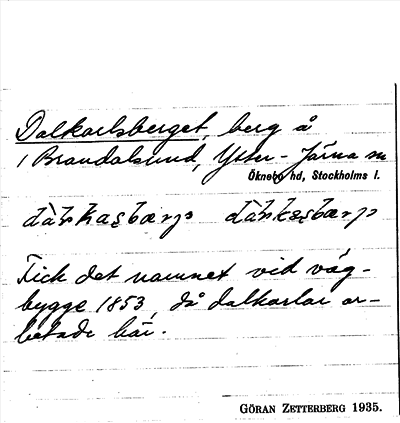 Dalkarlsberget, berg å
1 Brandalsund, Ytter-Järna sn
Öknebo hd, Stockholms l.
Fick det namnet vid väg-
bygge 1853, då dalkarlar ar-
betade här.
GÖRAN ZETTERBERG 1935.